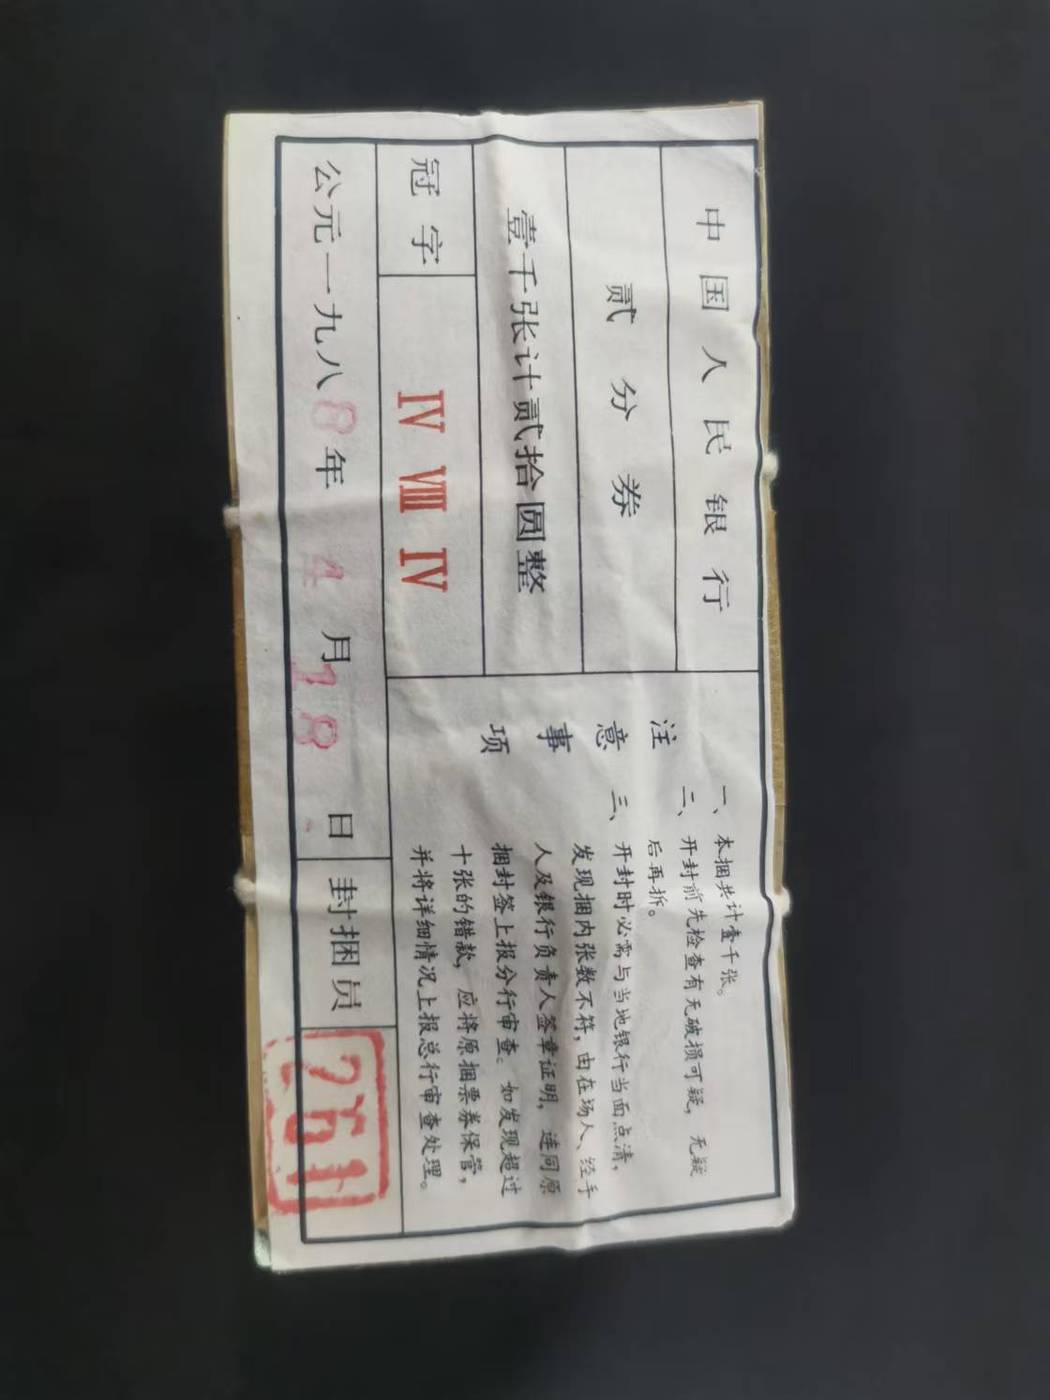 中国人民银行
贰分券
壹千张计贰拾圆整
冠字 IV VIII IV
公元一九八8年4月18日 封捆员 261
注意事项
一、本捆共计壹千张。
二、开封前先检查有无破损可疑，无疑
后再拆。
三、开封时必需与当地银行当面点清，
发现捆内张数不符，由在场人、经手
人及银行负责人签章证明，连同原
捆封签上报分行审查。如发现超过
十张的错款，应将原捆票券保管，
并将详细情况上报总行审查处理。